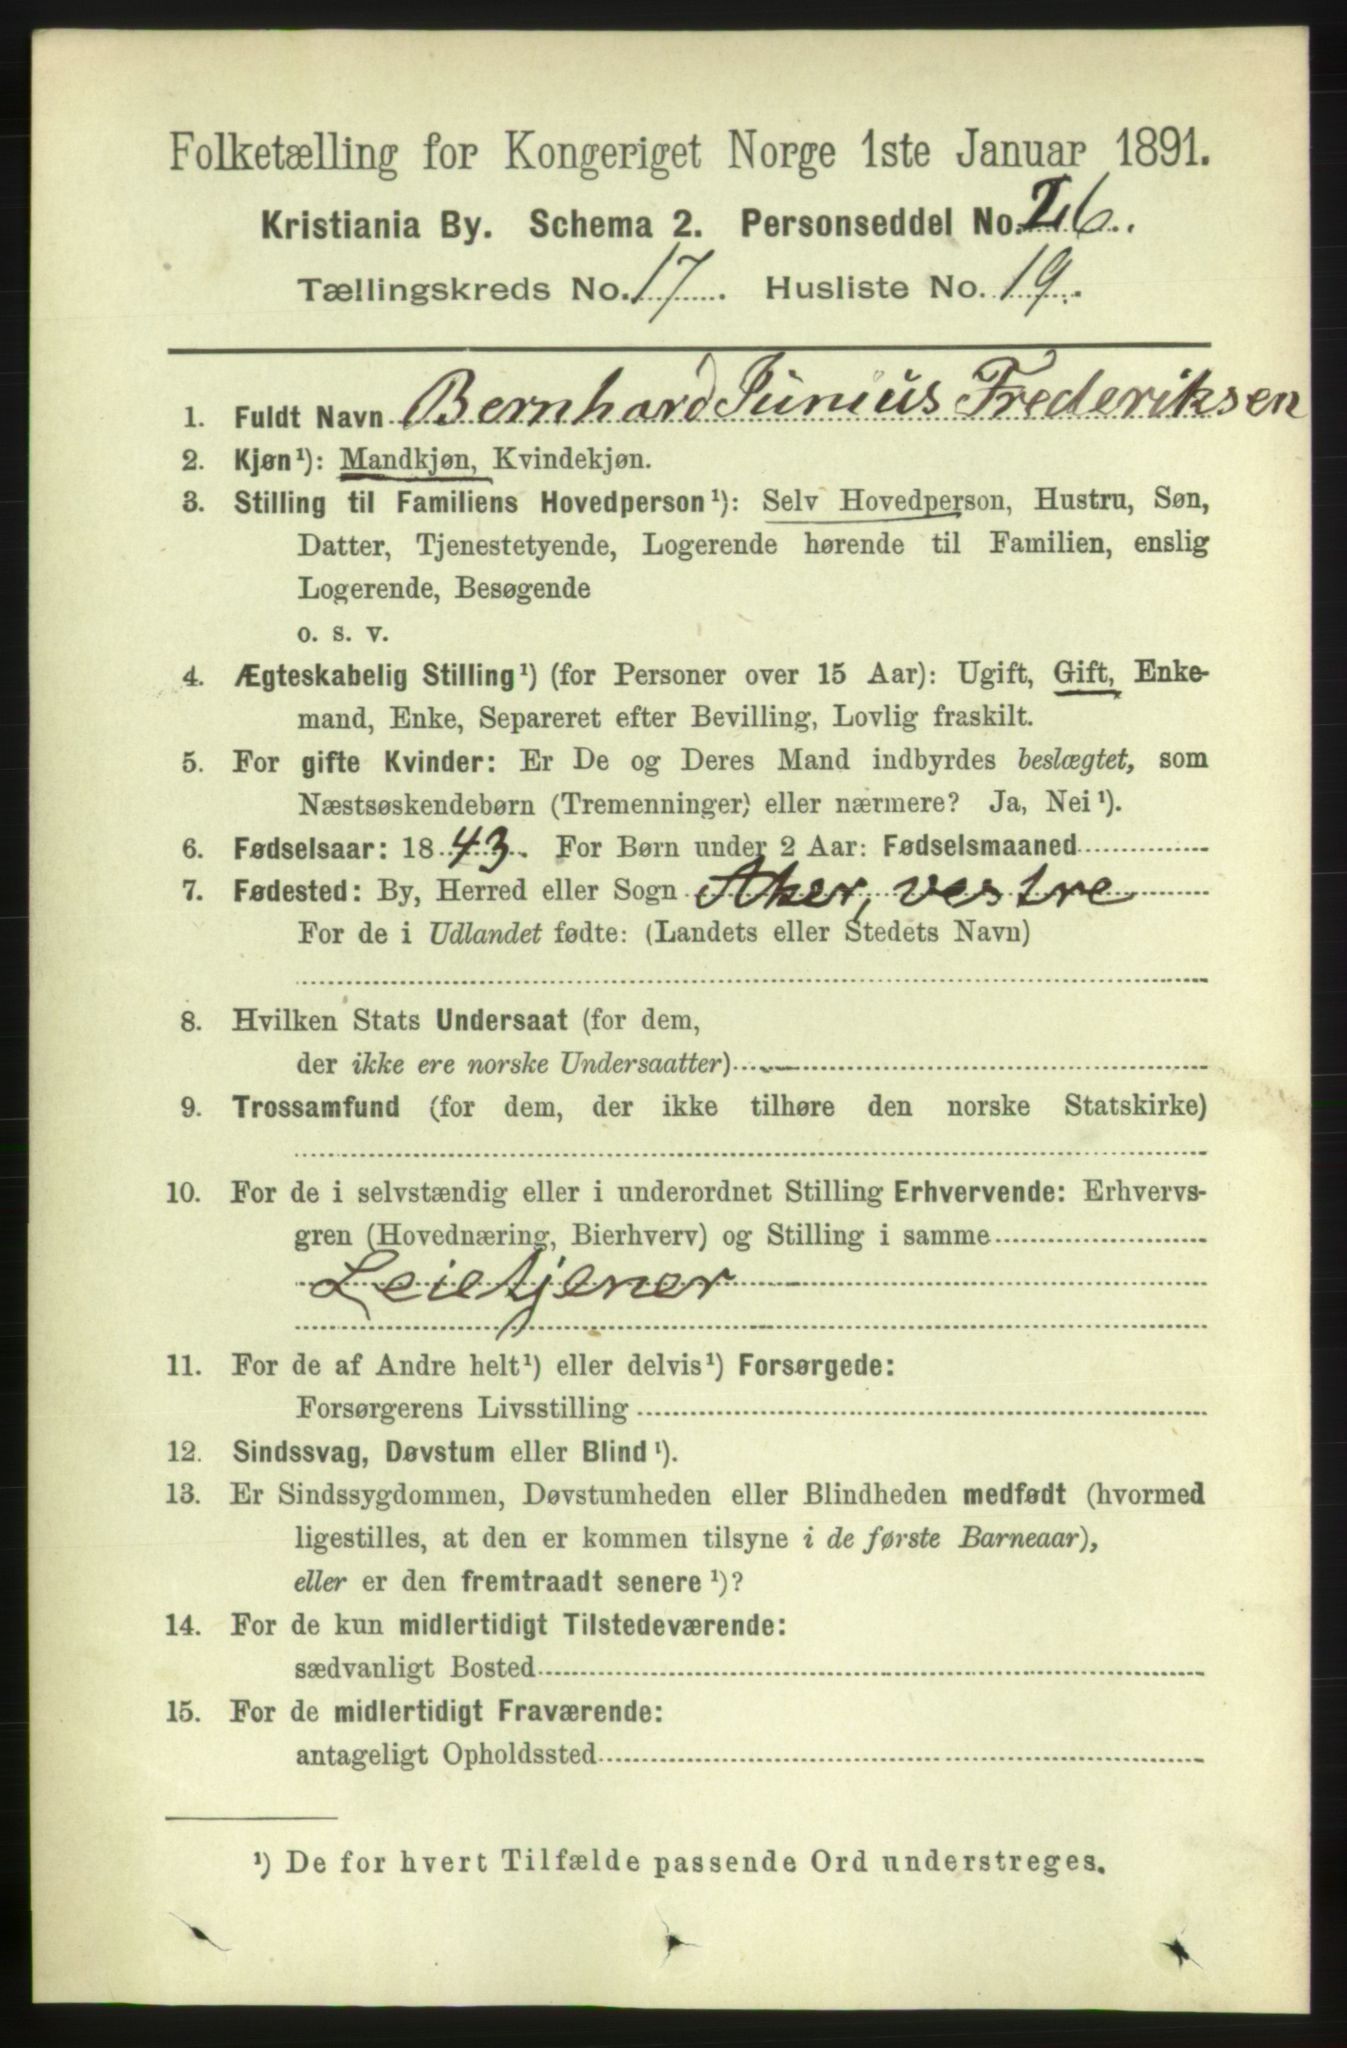 Folketælling for Kongeriget Norge 1ste Januar 1891.
Kristiania By. Schema 2. Personseddel No. 26.
Tællingskreds No. 17. Husliste No. 19.
1. Fuldt Navn Bernhard Junius Frederiksen
2. Kjøn¹): Mandkjøn, Kvindekjøn.
3. Stilling til Familiens Hovedperson¹): Selv Hovedperson, Hustru, Søn,
Datter, Tjenestetyende, Logerende hørende til Familien, enslig
Logerende, Besøgende
o. s. v.
4. Ægteskabelig Stilling¹) (for Personer over 15 Aar): Ugift, Gift, Enke-
mand, Enke, Separeret efter Bevilling, Lovlig fraskilt.
5. For gifte Kvinder: Er De og Deres Mand indbyrdes beslægtet, som
Næstsøskendebørn (Tremenninger) eller nærmere? Ja, Nei¹).
6. Fødselsaar: 1843. For Børn under 2 Aar: Fødselsmaaned
7. Fødested: By, Herred eller Sogn Aker, vestre
For de i Udlandet fødte: (Landets eller Stedets Navn)
8. Hvilken Stats Undersaat (for dem,
der ikke ere norske Undersaatter)
9. Trossamfund (for dem, der ikke tilhøre den norske Statskirke)
10. For de i selvstændig eller i underordnet Stilling Erhvervende: Erhvervs-
gren (Hovednæring, Bierhverv) og Stilling i samme
Leietjener
11. For de af Andre helt¹) eller delvis¹) Forsørgede:
Forsørgerens Livsstilling
12. Sindssvag, Døvstum eller Blind¹).
13. Er Sindssygdommen, Døvstumheden eller Blindheden medfødt (hvormed
ligestilles, at den er kommen tilsyne i de første Barneaar),
eller er den fremtraadt senere¹)?
14. For de kun midlertidigt Tilstedeværende:
sædvanligt Bosted
15. For de midlertidigt Fraværende:
antageligt Opholdssted
¹) De for hvert Tilfælde passende Ord understreges.